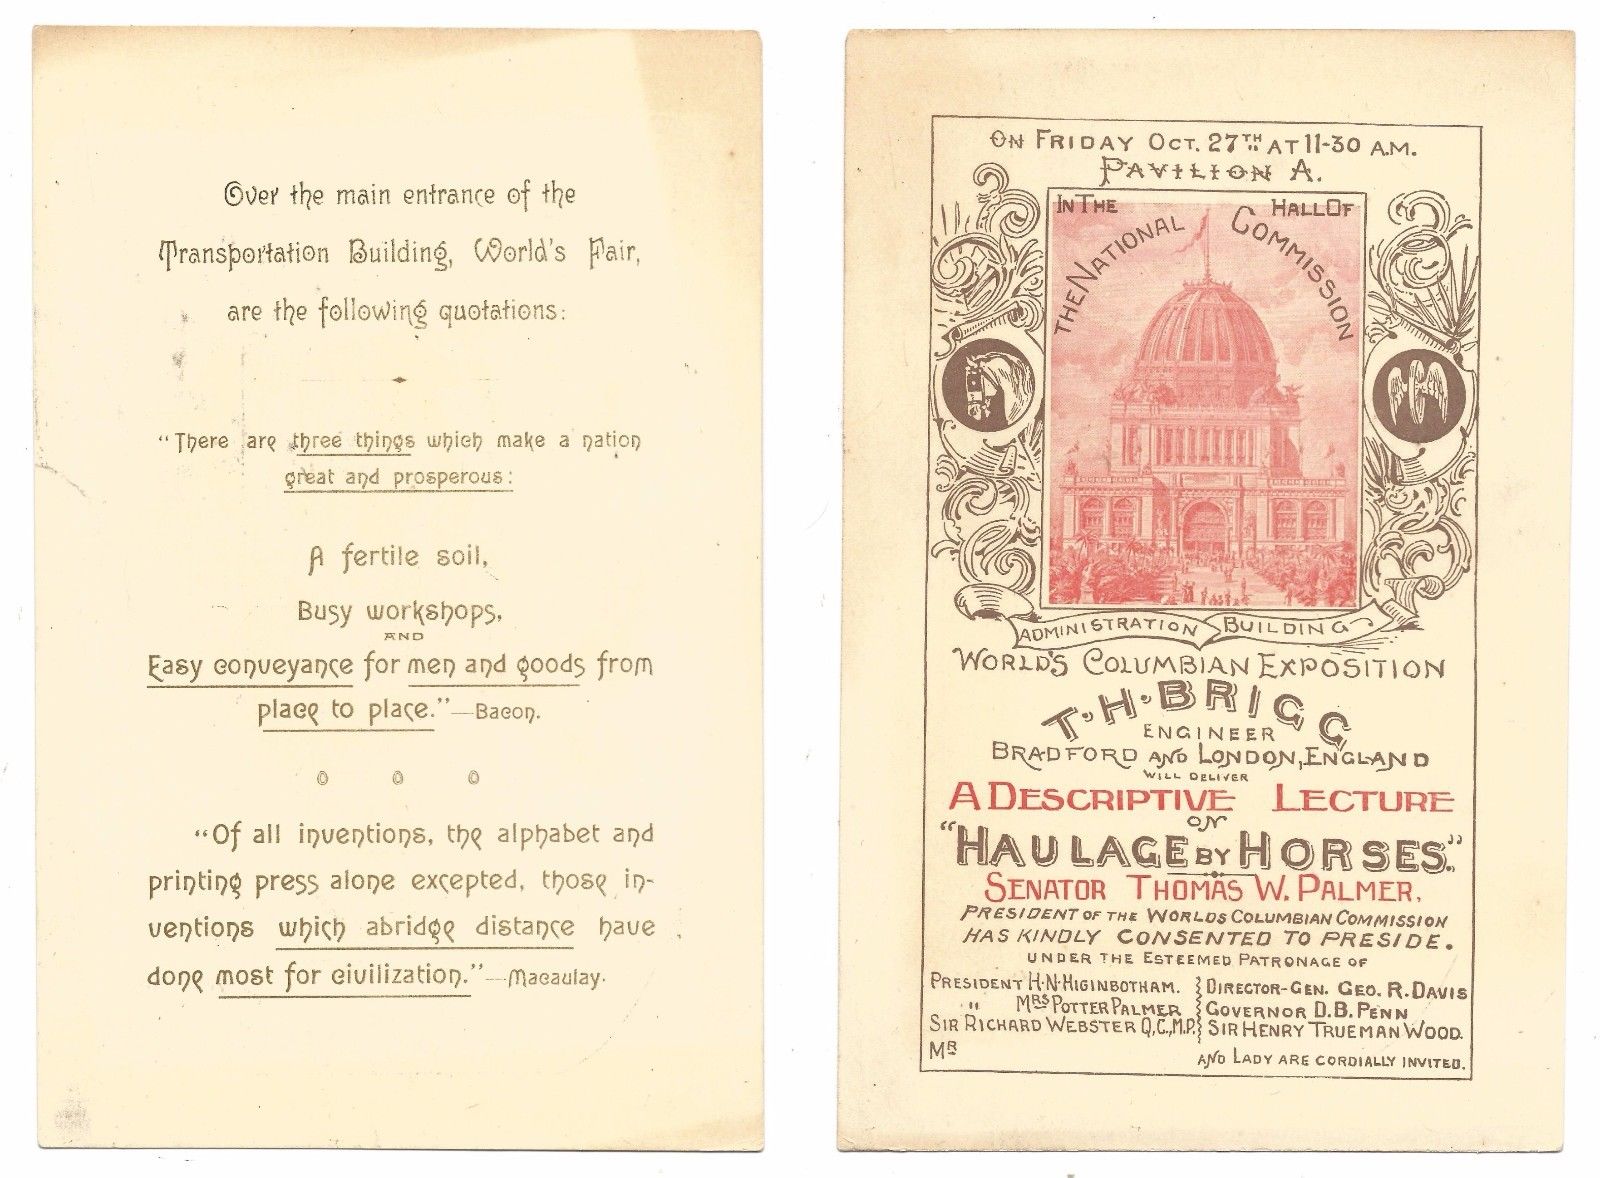 Over the main entrance of the
Transportation Building, World's Fair,
are the following quotations:
"There are three things which make a nation
great and prosperous:
A fertile soil,
Busy workshops,
AND
Easy conveyance for men and goods from
place to place."—Bacon.
"Of all inventions, the alphabet and
printing press alone excepted, those in-
ventions which abridge distance have
done most for civilization."—Macaulay.
ON FRIDAY OCT. 27TH AT 11-30 A.M.
PAVILION A.
IN THE HALL OF
THE NATIONAL COMMISSION
ADMINISTRATION BUILDING
WORLD'S COLUMBIAN EXPOSITION
T. H. BRIGG
ENGINEER
BRADFORD AND LONDON, ENGLAND
WILL DELIVER
A DESCRIPTIVE LECTURE
ON
"HAULAGE BY HORSES."
SENATOR THOMAS W. PALMER,
PRESIDENT OF THE WORLDS COLUMBIAN COMMISSION
HAS KINDLY CONSENTED TO PRESIDE.
UNDER THE ESTEEMED PATRONAGE OF
PRESIDENT H. N. HIGINBOTHAM. DIRECTOR-GEN. GEO. R. DAVIS
" MRS POTTER PALMER GOVERNOR D. B. PENN
SIR RICHARD WEBSTER Q.C., M.P. SIR HENRY TRUEMAN WOOD.
MR AND LADY ARE CORDIALLY INVITED.